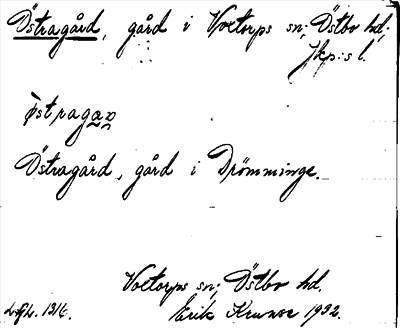 Östragård, gård i Voxtorps sn; Östbo hd;
Jkp:s l.
Östragård, gård i Drömminge.
Voxtorps sn; Östbo hd.
Erik 1932.